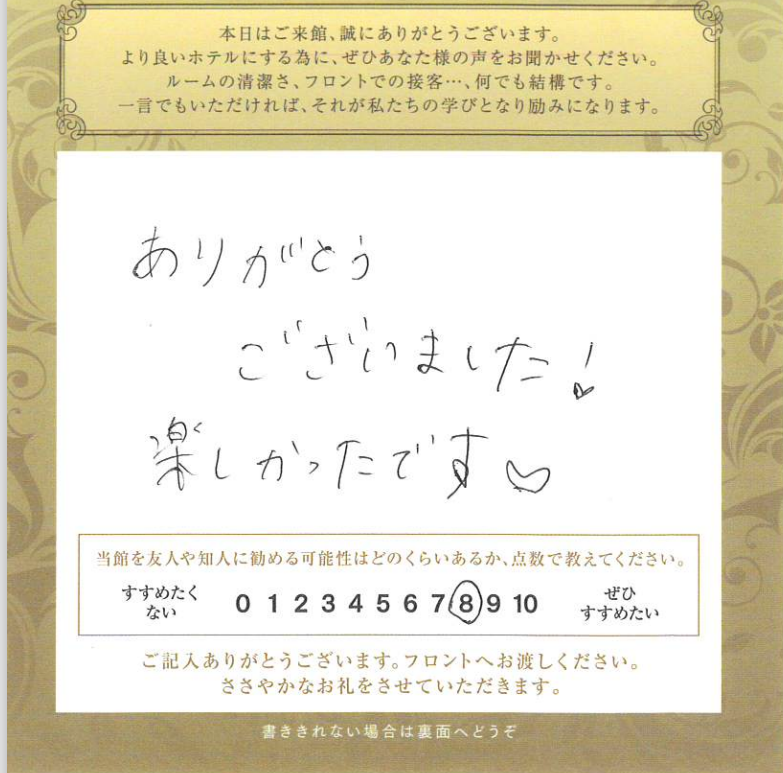 本日はご来館、誠にありがとうございます。
より良いホテルにする為に、ぜひあなた様の声をお聞かせください。
ルームの清潔さ、フロントでの接客…、何でも結構です。
一言でもいただければ、それが私たちの学びとなり励みになります。
ありがとう
ございました!
楽しかったです♡
当館を友人や知人に勧める可能性はどのくらいあるか、点数で教えてください。
すすめたく
ない
0 1 2 3 4 5 6 7 8 9 10
ぜひ
すすめたい
ご記入ありがとうございます。フロントへお渡しください。
ささやかなお礼をさせていただきます。
書ききれない場合は裏面へどうぞ